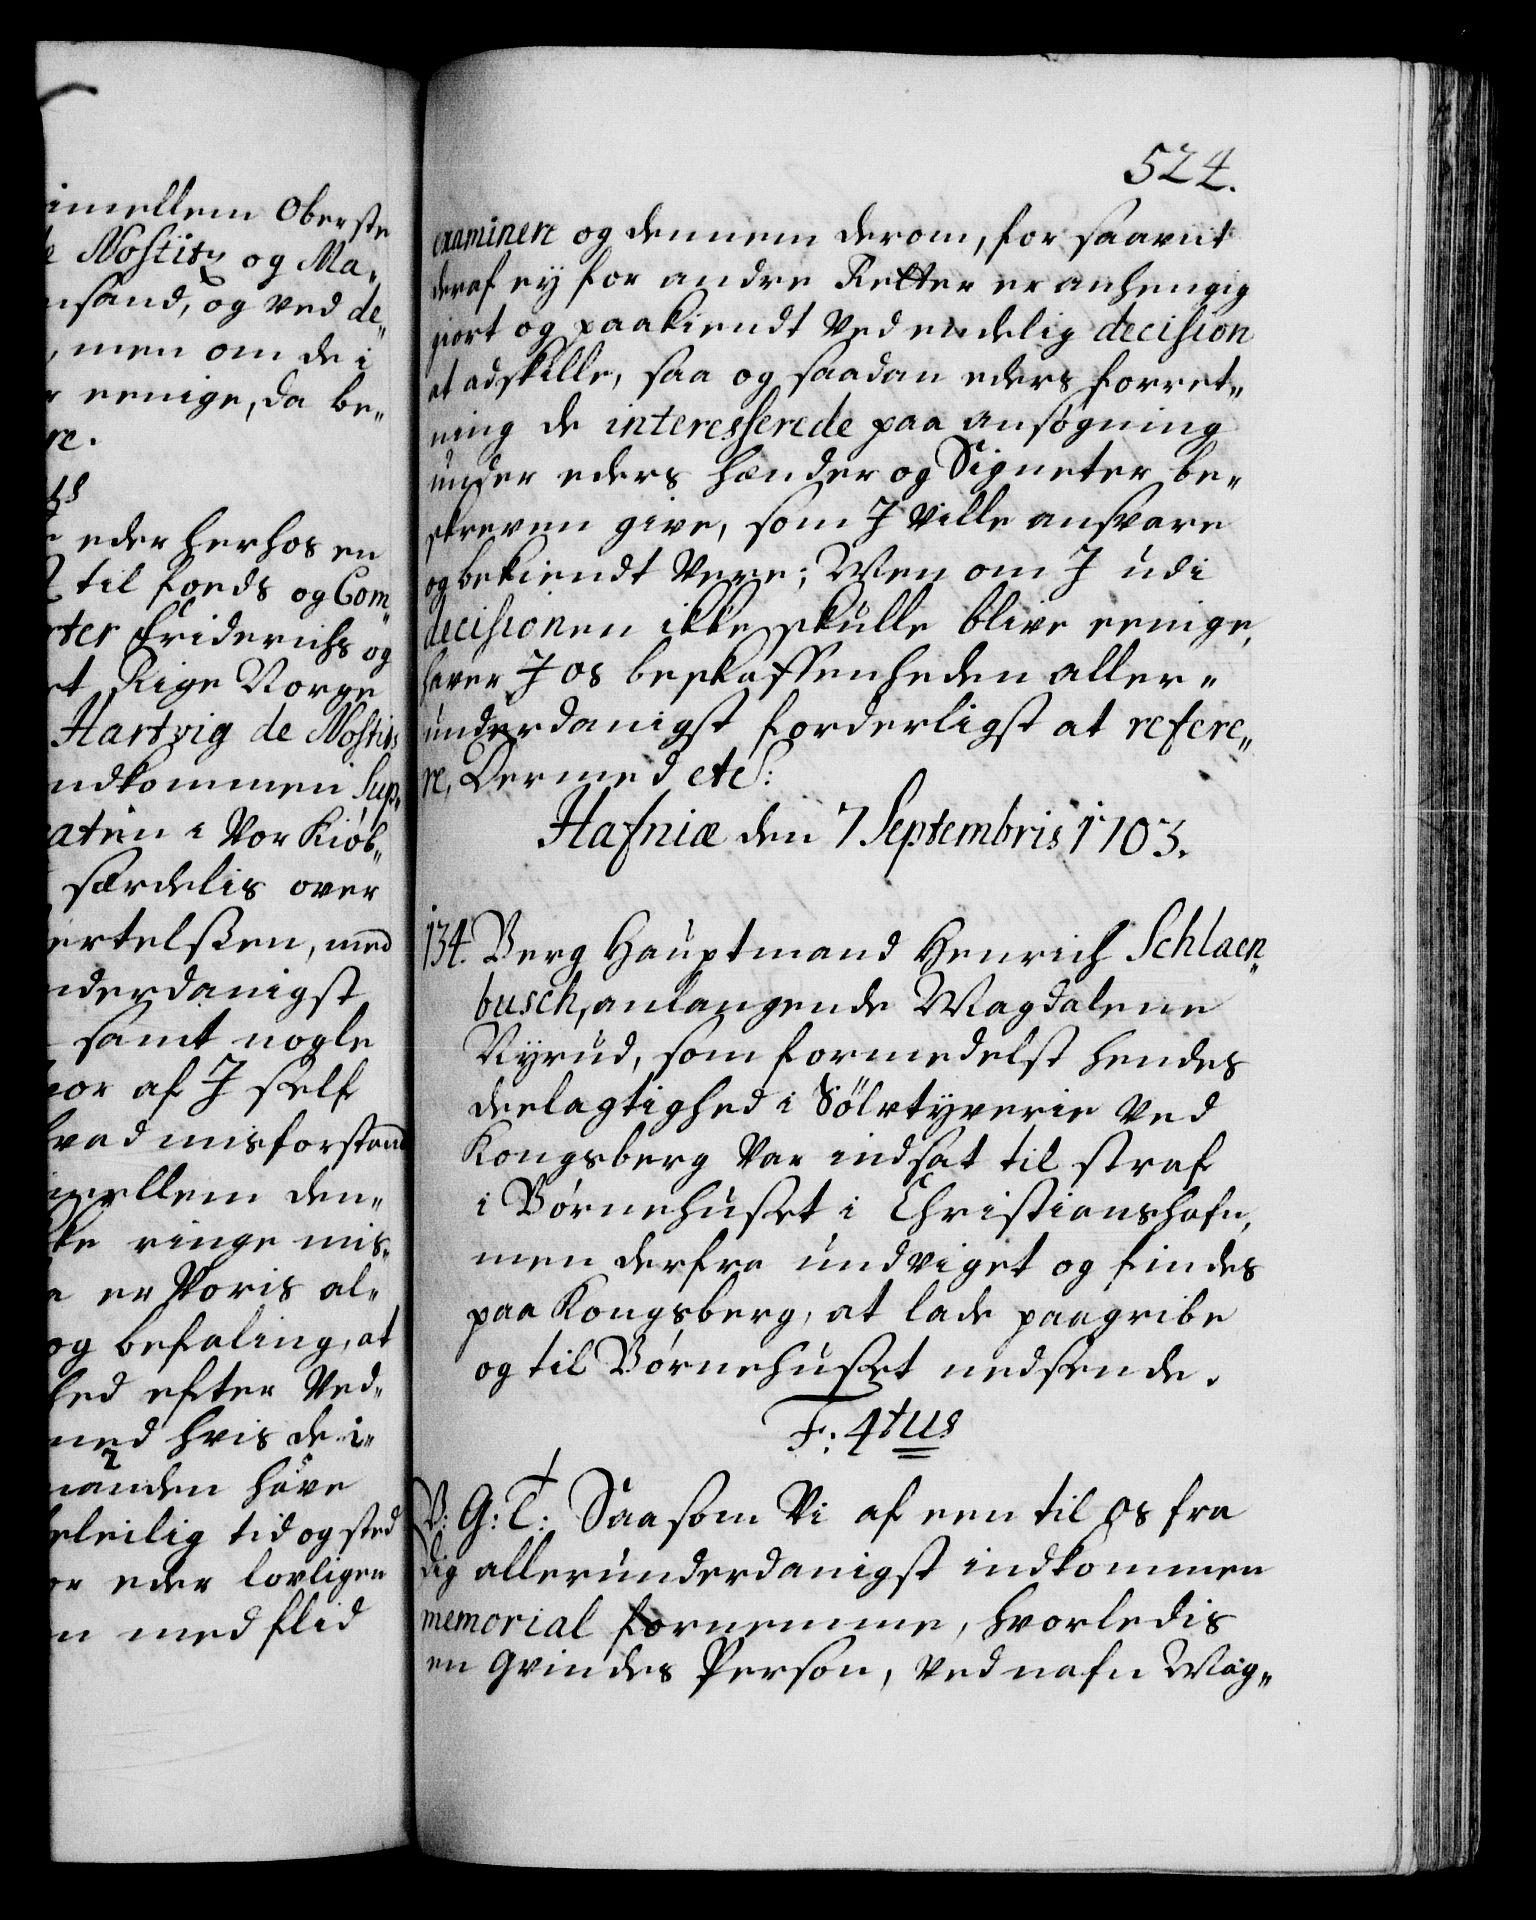 imellem Oberste
de Nostitz og Ma„
nsand, og ved de„
, men om de i
r eenige, da be„
re.
ts
eder herhos en
til fords og Com„
rter Friderichs og
rt Rige Norge
Hartvig de Nostitz
ndkommen Sup„
catin i Vor Kiøb„
særdelis over
ertelssen, med
nderdanigst
samt nogle
vor af J self
hvad misforstand
imellem den„
ke ringe mis„
er Voris al„
og befaling, at
sted efter Ved„
med hvis de i„
manden have
eleilig tid og sted
or eder lovligen
n med flid
524.
examinere og dennem derom, for saavit
deraf ey for andre Retter er anhengig
giort og paakiendt ved endelig decision
at adskille, saa og saadan eders forret„
ning de interesserede paa ansøgning
under eders hænder og Signeter be„
skreven give, som J ville ansvare
og bekiendt være; Men om J udi
decisionen ikke skulle blive eenige,
haver J os beskaffenheden aller„
underdanigst forderligst at refere„
re, Dermed etc:
Hafniæ den 7 Septembris 1703.
134. Berg Hauptmand Henrich Schlaen„
busch, anlangende Magdalene
Nyrud, som formedelst hendes
deelagtighed i Sölvtyverie ved
Kongsberg var indsat til straf
i Børnehuset i Christianshafn,
men derfra undviget og findes
paa Kongsberg, at lade paagribe
og til Børnehuset nedsende.
F: 4tus
V: G: T: Saasom Vi af een til os fra
dig allerunderdanigst indkommen
memorial fornemme, hvorledis
en Qvindes Person, ved nafn Mag„